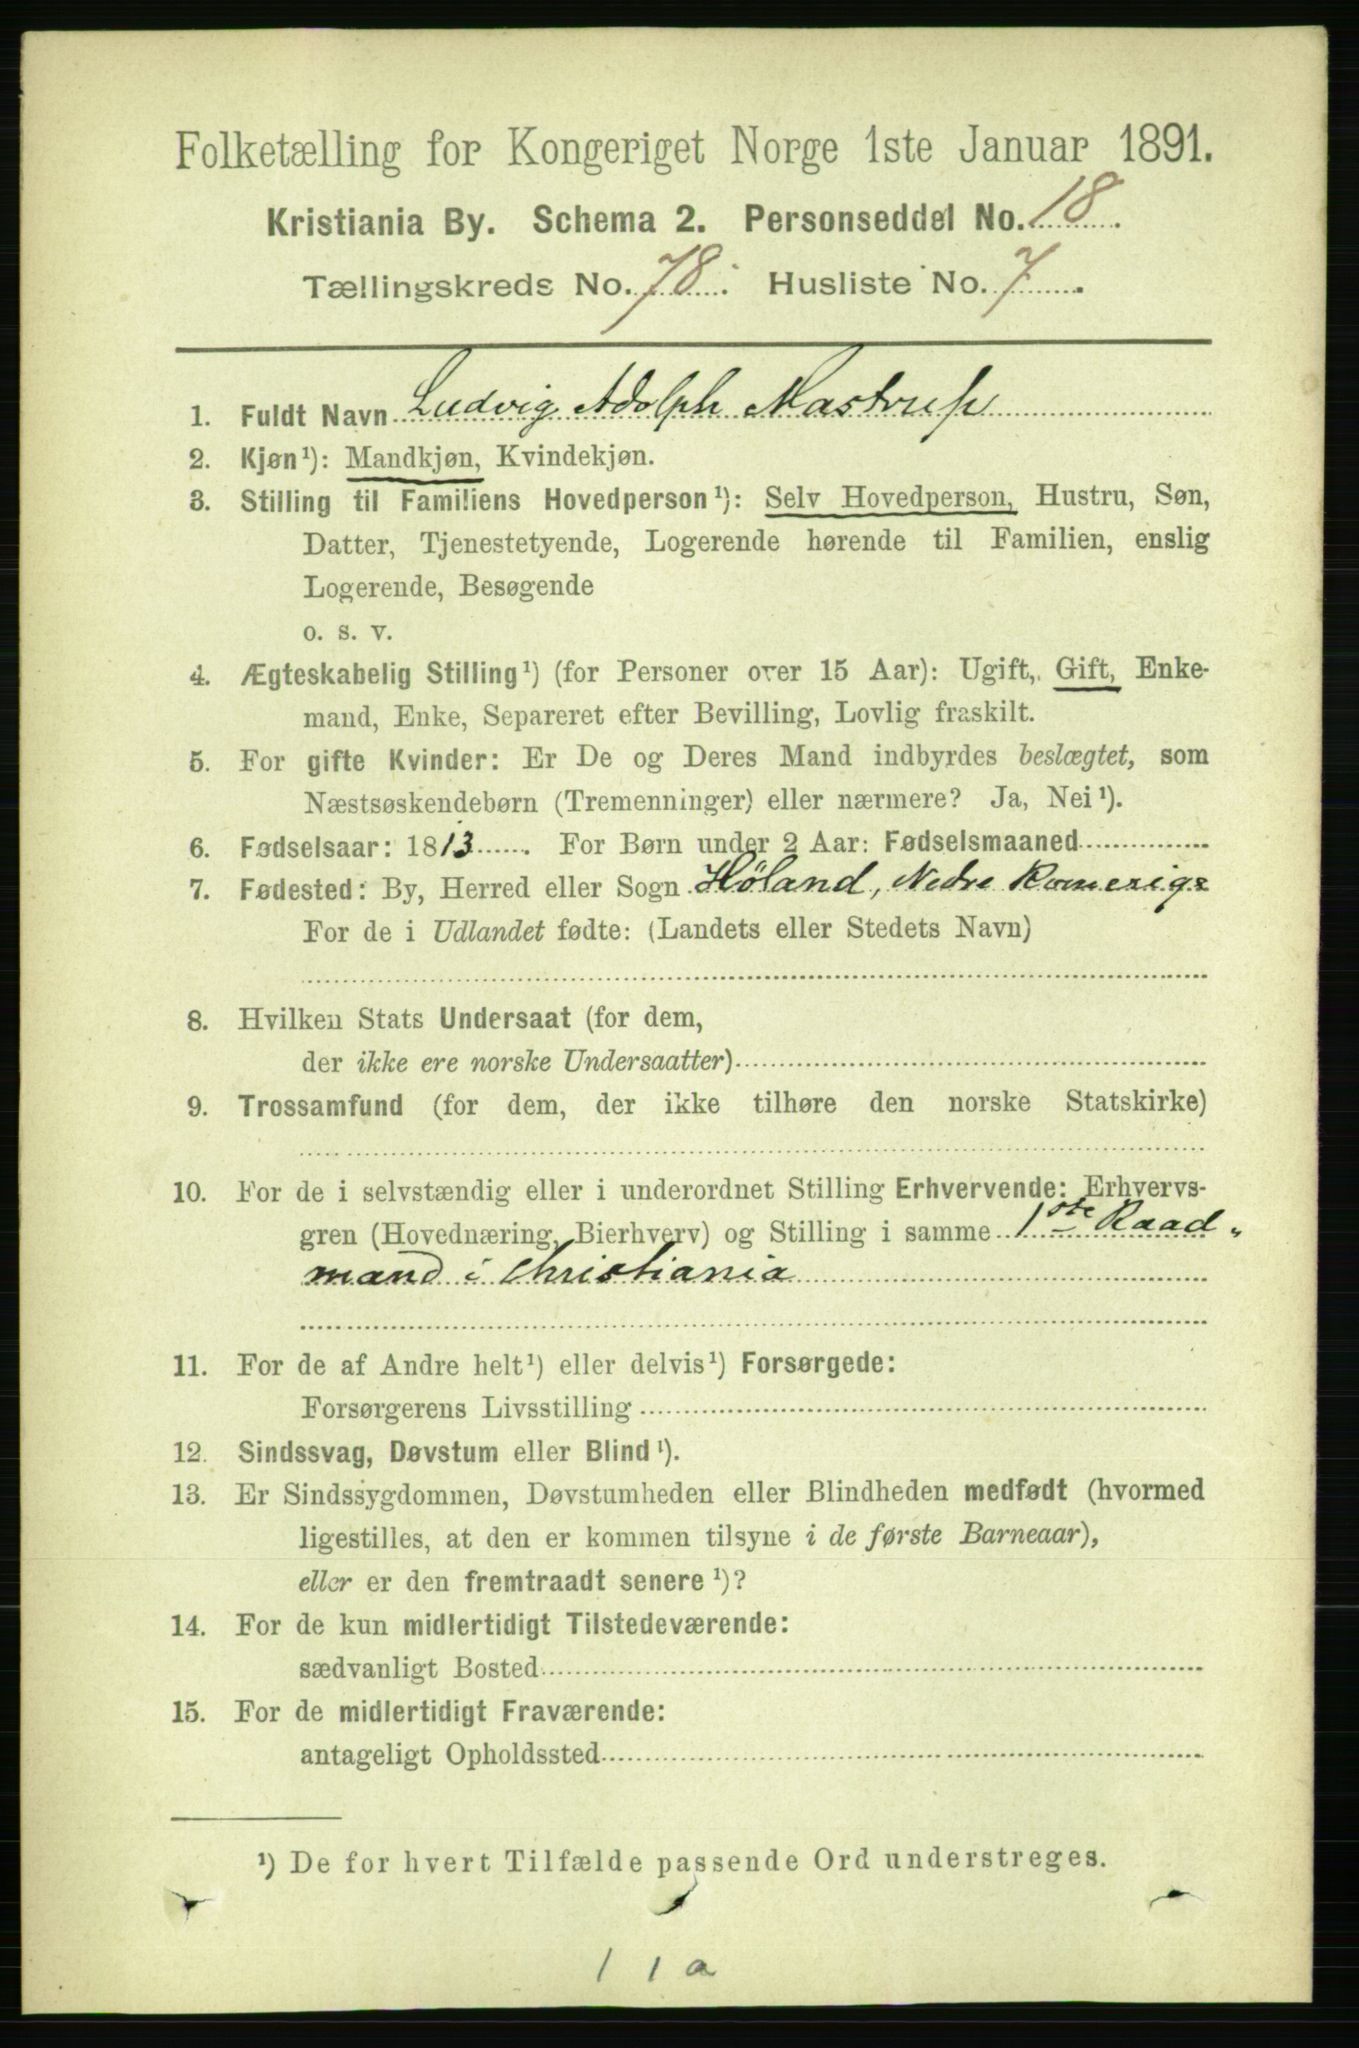 Folketælling for Kongeriget Norge 1ste Januar 1891.
Kristiania By. Schema 2. Personseddel No. 18.
Tællingskreds No. 78. Husliste No. 7.
1. Fuldt Navn Ludvig Adolph Mastrup
2. Kjøn¹): Mandkjøn, Kvindekjøn.
3. Stilling til Familiens Hovedperson¹): Selv Hovedperson, Hustru, Søn,
Datter, Tjenestetyende, Logerende hørende til Familien, enslig
Logerende, Besøgende
o. s. v.
4. Ægteskabelig Stilling¹) (for Personer over 15 Aar): Ugift, Gift, Enke-
mand, Enke, Separeret efter Bevilling, Lovlig fraskilt.
5. For gifte Kvinder: Er De og Deres Mand indbyrdes beslægtet, som
Næstsøskendebørn (Tremenninger) eller nærmere? Ja, Nei¹).
6. Fødselsaar: 1813. For Børn under 2 Aar: Fødselsmaaned
7. Fødested: By, Herred eller Sogn Høland, Nedre Romerige
For de i Udlandet fødte: (Landets eller Stedets Navn)
8. Hvilken Stats Undersaat (for dem,
der ikke ere norske Undersaatter)
9. Trossamfund (for dem, der ikke tilhøre den norske Statskirke)
10. For de i selvstændig eller i underordnet Stilling Erhvervende: Erhvervs-
gren (Hovednæring, Bierhverv) og Stilling i samme 1ste Raad-
mand i Christiania
11. For de af Andre helt¹) eller delvis¹) Forsørgede:
Forsørgerens Livsstilling
12. Sindssvag, Døvstum eller Blind¹).
13. Er Sindssygdommen, Døvstumheden eller Blindheden medfødt (hvormed
ligestilles, at den er kommen tilsyne i de første Barneaar),
eller er den fremtraadt senere¹)?
14. For de kun midlertidigt Tilstedeværende:
sædvanligt Bosted
15. For de midlertidigt Fraværende:
antageligt Opholdssted
¹) De for hvert Tilfælde passende Ord understreges.
1 1 a